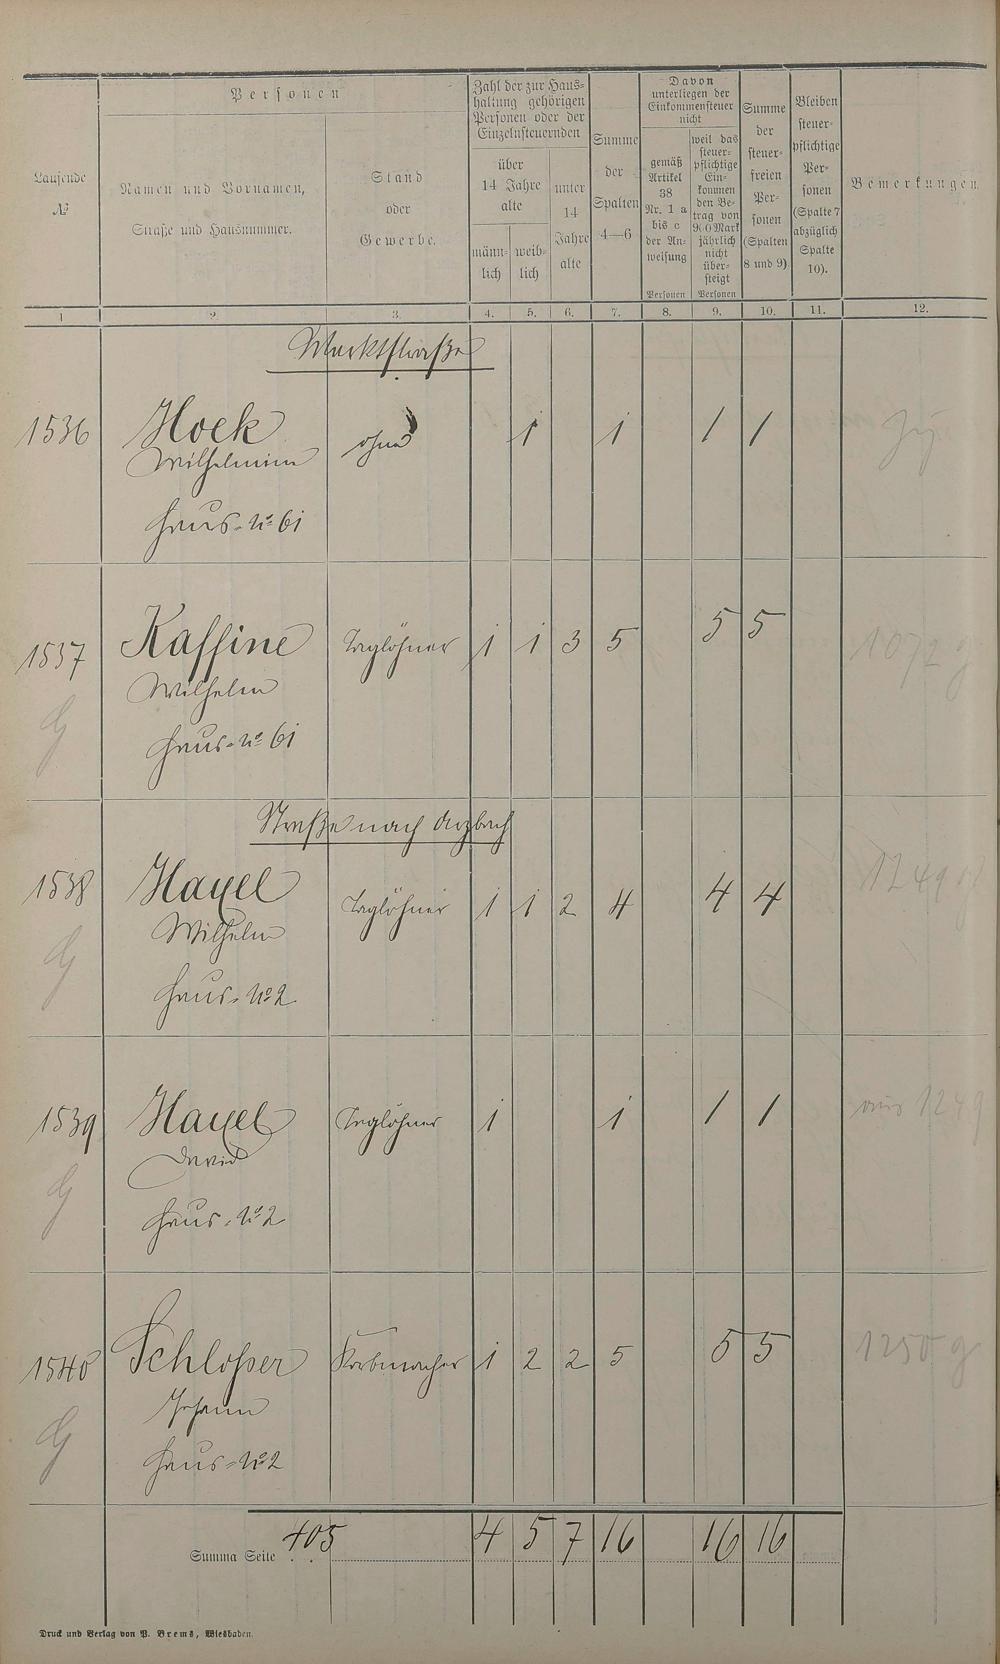 Laufende
№
Personen
Namen und Vornamen,
Straße und Hausnummer.
Stand
oder
Gewerbe.
Zahl der zur Haus=
haltung gehörigen
Personen oder der
Einzelnsteuernden
über
14 Jahre
alte
männ=
lich
weib=
lich
unter
14
Jahre
alte
Summe
der
Spalten
4—6
Davon
unterliegen der
Einkommensteuer
nicht
gemäß
Artikel
38
Nr. 1 a
bis c
der An=
weisung
Personen
weil das
steuer=
pflichtige
Ein=
kommen
den Be=
trag von
900 Mark
jährlich
nicht
über=
steigt
Personen
Summe
der
steuer=
freien
Per=
sonen
(Spalten
8 und 9)
Bleiben
steuer=
pflichtige
Per=
sonen
(Spalte 7
abzüglich
Spalte
10).
Bemerkungen.
1 2. 3. 4. 5. 6. 7. 8. 9. 10. 11. 12.
Marktstraße
1536 Hoek ohne 1 1 1 1
Wilhelmine
Haus-No 61
1537 Kaffine Taglöhner 1 1 3 5 5 5 1072 g
Wilhelm
Haus-No 61
Straße nach Arzbach
1538 Hayel Taglöhner 1 1 2 4 4 4 1249
Wilhelm
Haus-No 2
1539 Hayel Taglöhner 1 1 1 1 1249
David
Haus-No 2
1540 Schlosser Korbmacher 1 2 2 5 5 5 1250 g
Johann
Haus-No 2
Summa Seite 405 4 5 7 16 16 16
Druck und Verlag von P. Brems, Wiesbaden.